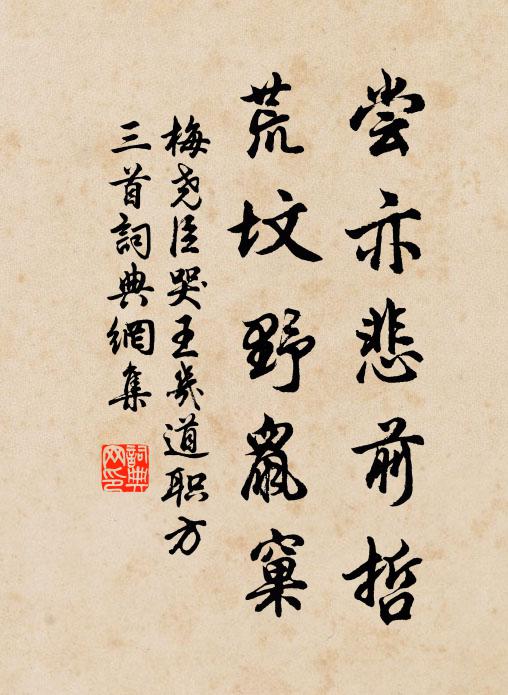 尝亦悲前哲
荒坟野鼠窠
梅尧臣哭王幾道职方
三首詞典網集
詞典网印